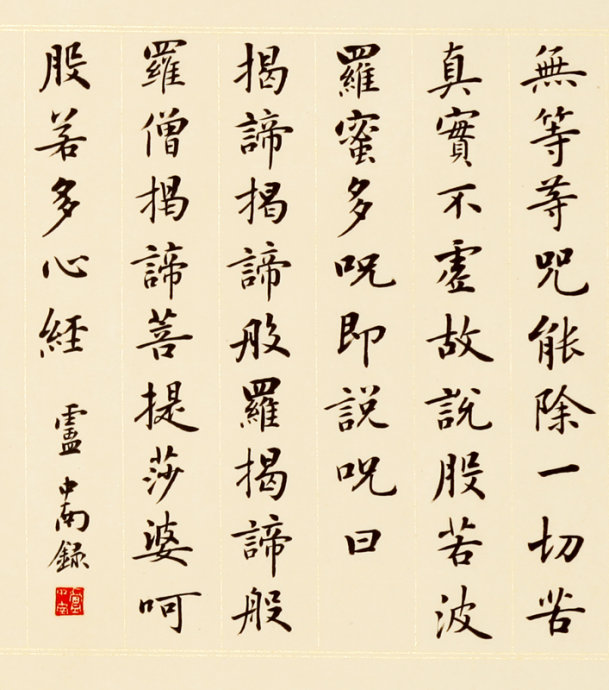 無等等咒能除一切苦
真實不虛故說股若波
羅蜜多呪即說呪曰
揭諦揭諦般羅揭諦般
羅僧揭諦菩提莎婆呵
股若多心經 盧中南録